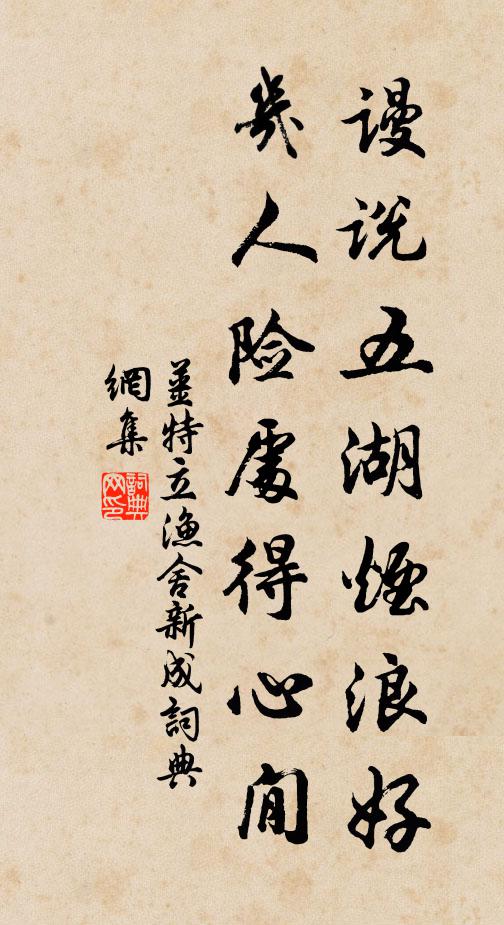 谩说五湖烟浪好
几人险处得心闲
姜特立渔舍新成词典
網集
詞典网印